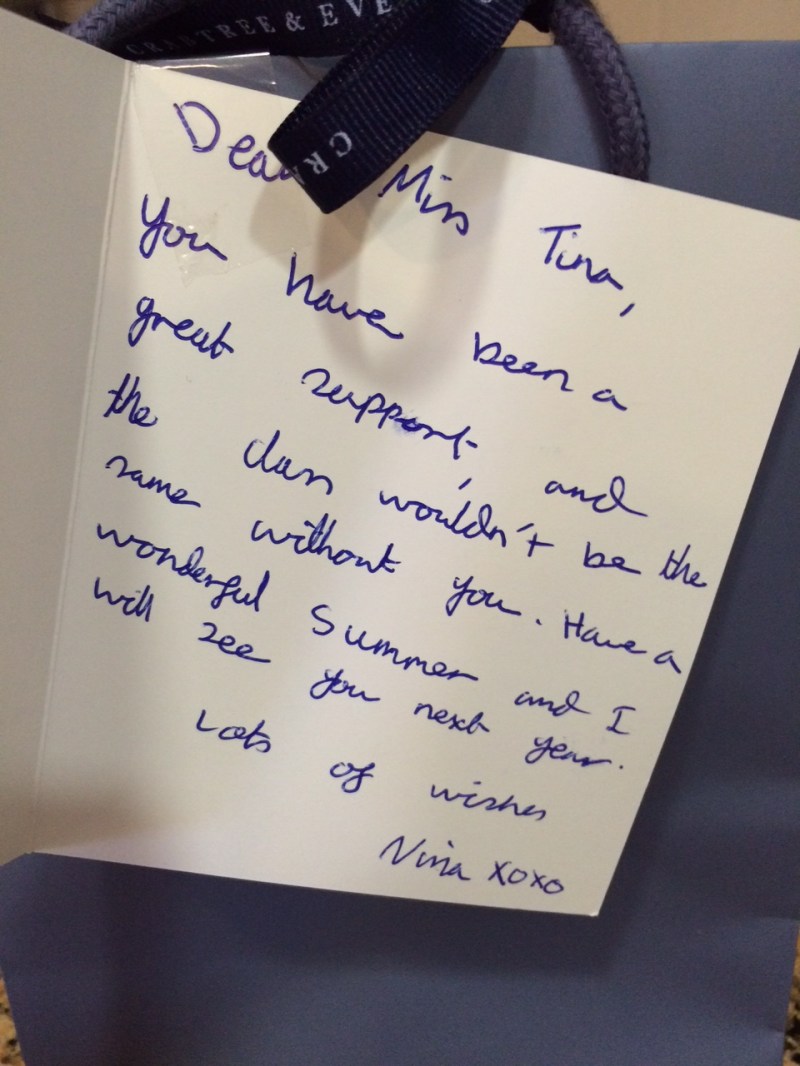 CRABTREE & EVE
CRA
Dear Miss Tina,
You have been a
great support, and
the class wouldn't be the
same without you. Have a
wonderful Summer and I
will see you next year.
Lots of wishes
Nina xoxo